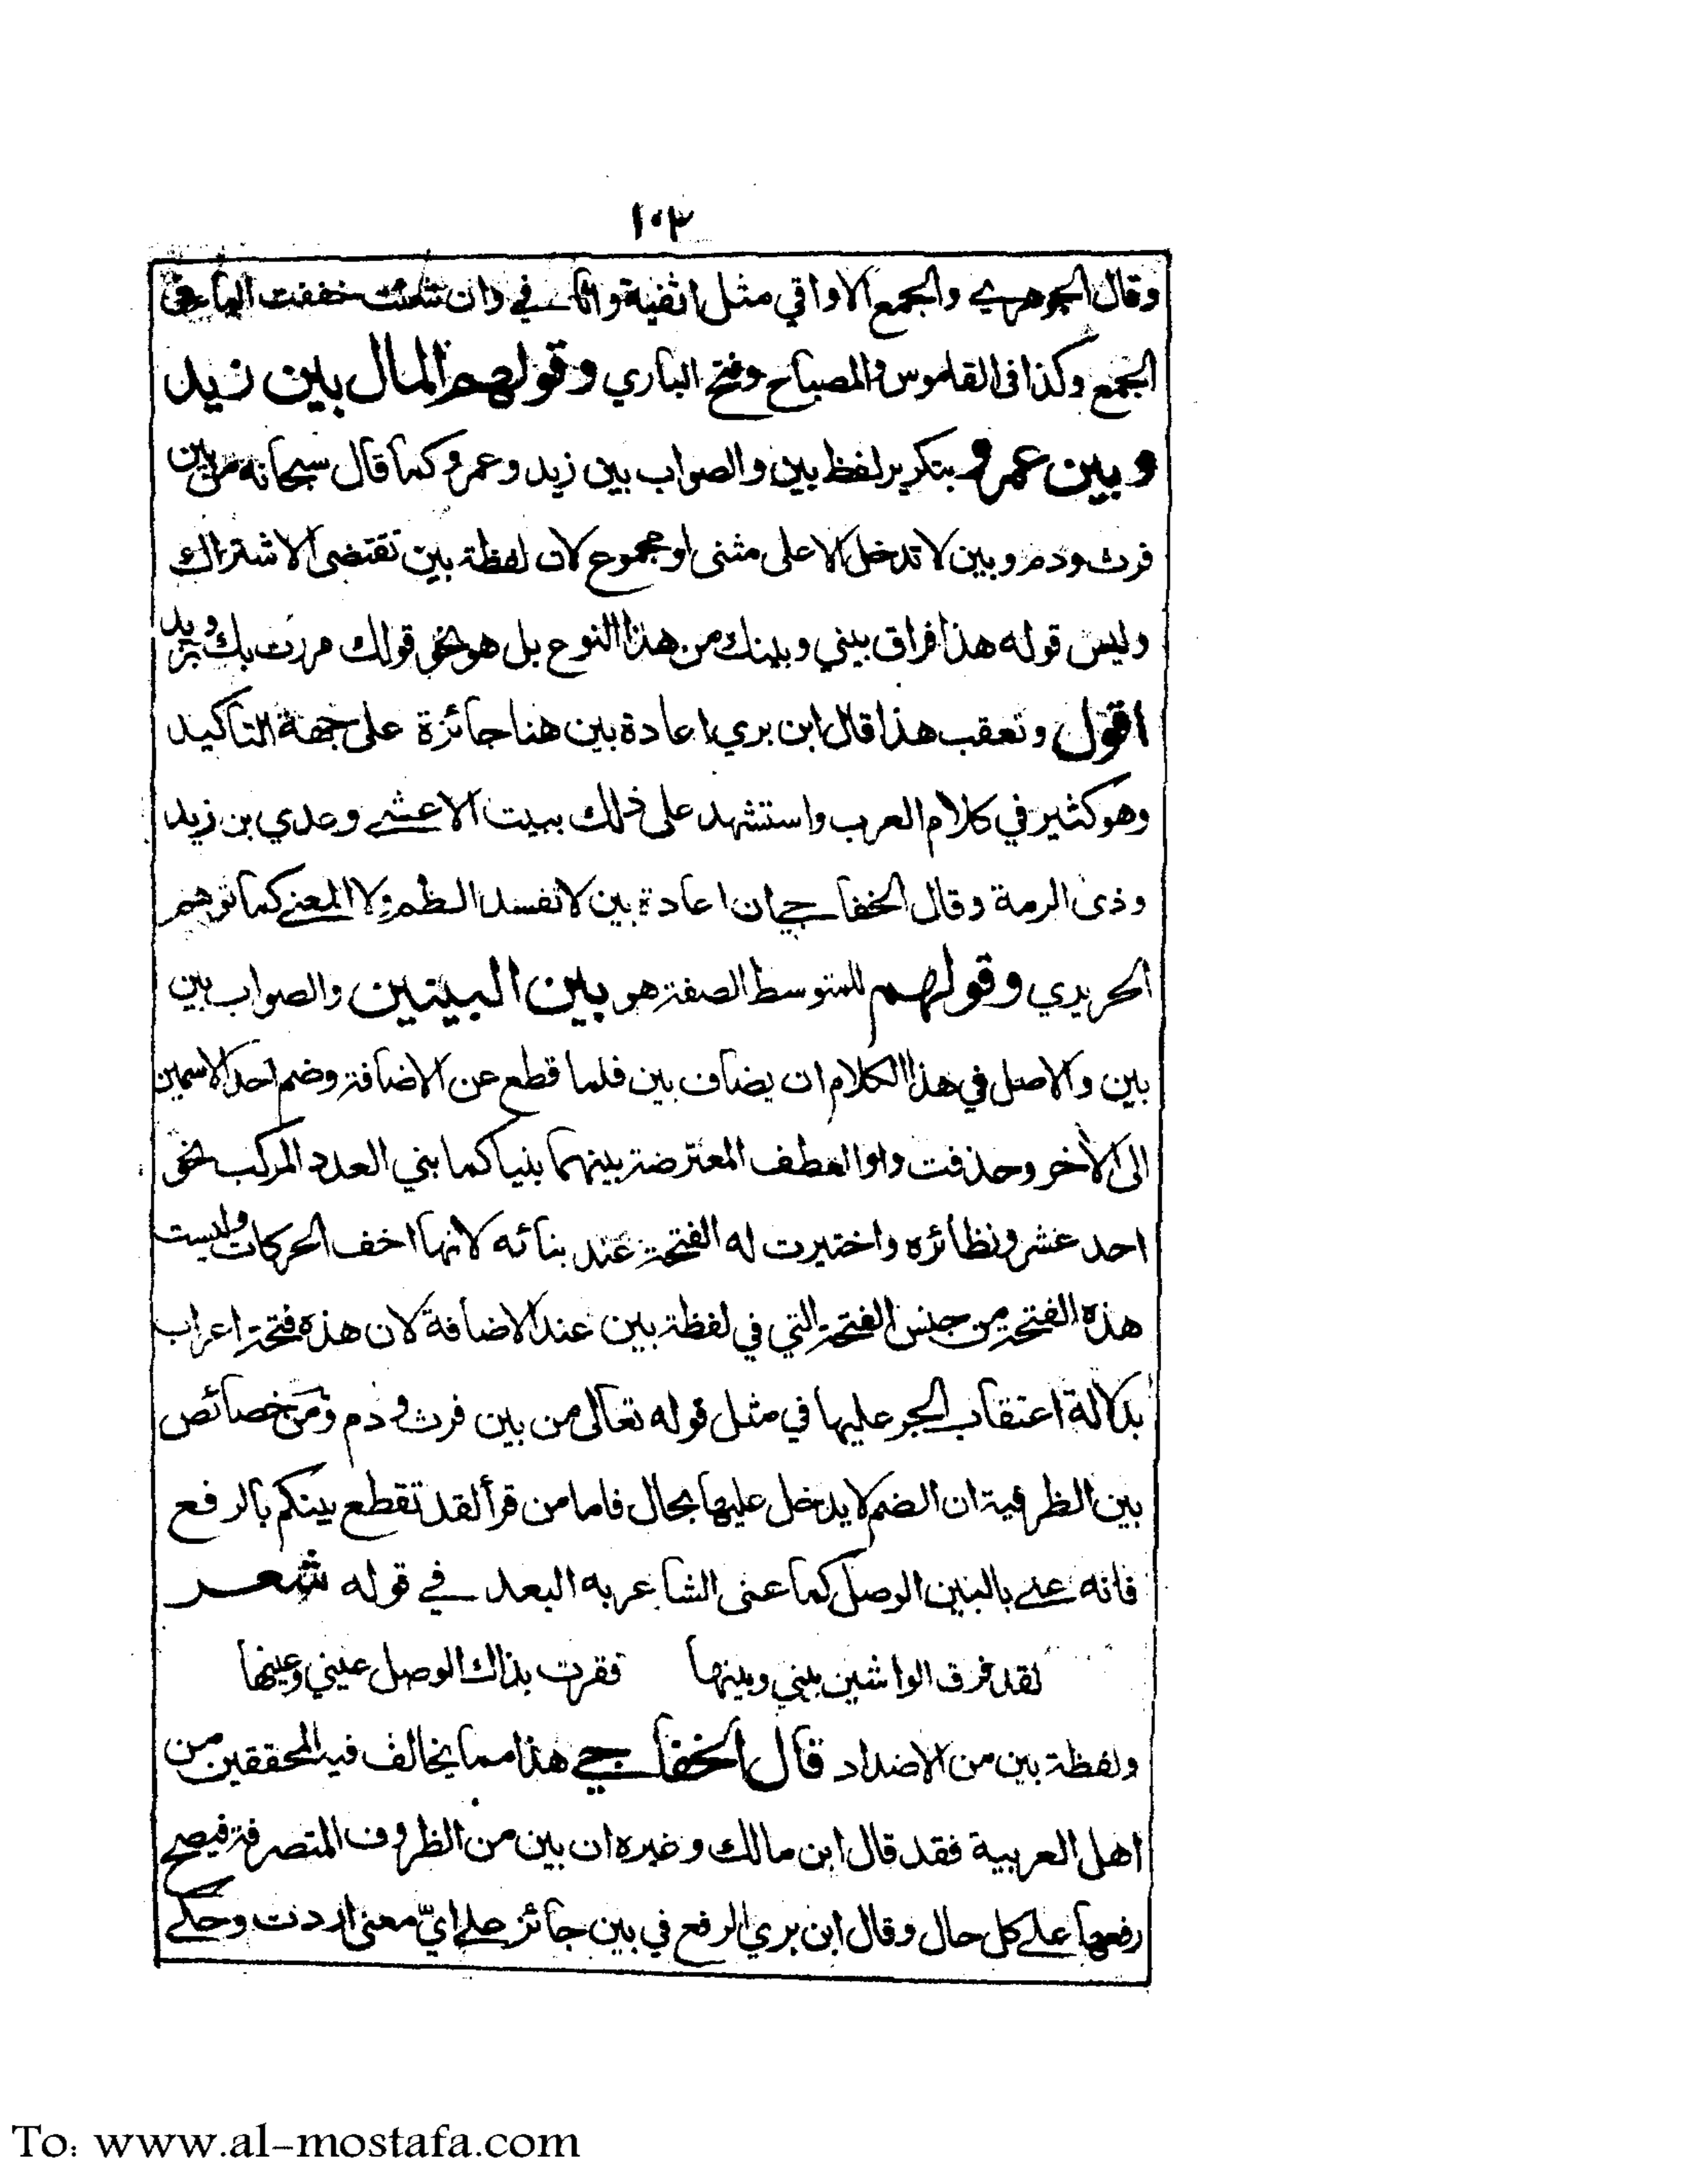 ١٠٣
وقال الجوهري والجمع الاواقي مثل اثفية واثافي وان شئت خففت الياء في
الجمع وكذا في القاموس والمصباح وفتح الباري وقولهم المال بين زيد
وبين عمرو بتكرير لفظ بين والصواب بين زيد وعمرو كما قال سبحانه من بين
فرث ودم وبين لا تدخل الا على مثنى او مجموع لان لفظة بين تقتضي الاشتراك
وليس قوله هذا فراق بيني وبينك من هذا النوع بل هو نحو قولك مررت بك وبزيد
اقول وتعقب هذا قال ابن بري اعادة بين هنا جائزة على جهة التاكيد
وهو كثير في كلام العرب واستشهد على ذلك ببيت الاعشى وعدي بن زيد
وذي الرمة وقال الخفاجي ان اعادة بين لا تفسد النظم ولا المعنى كما توهم
الحريري وقولهم للمتوسط الصفة هو بين البينين والصواب بين
بين والاصل في هذا الكلام ان يضاف بين فلما قطع عن الاضافة وضم احد الاسمين
الى الأخر وحذفت واو العطف المعترضة بينهما بنيا كما بني العدد المركب نحو
احد عشر ونظائره واختيرت له الفتحة عند بنائه لانها اخف الحركات وليست
هذه الفتحة من جنس الفتحة التي في لفظة بين عند الاضافة لان هذه فتحة اعراب
بدلالة اعتقاب الجر عليها في مثل قوله تعالى من بين فرث ودم ومن خصائص
بين الظرفية ان الضم لا يدخل عليها بحال فاما من قرأ لقد تقطع بينكم بالرفع
فانه عنى بالبين الوصل كما عنى الشاعر به البعد في قوله شعر
لقد فرق الواشين بيني وبينها فقرت بذاك الوصل عيني وعينها
ولفظة بين من الاضداد قال الخفاجي هذا مما يخالف فيه المحققين من
اهل العربية فقد قال ابن مالك وغيره ان بين من الظروف المتصرفة فيصح
رفعها على كل حال وقال ابن بري الرفع في بين جائز على ايّ معنى اردت وحكى
To: www.al-mostafa.com